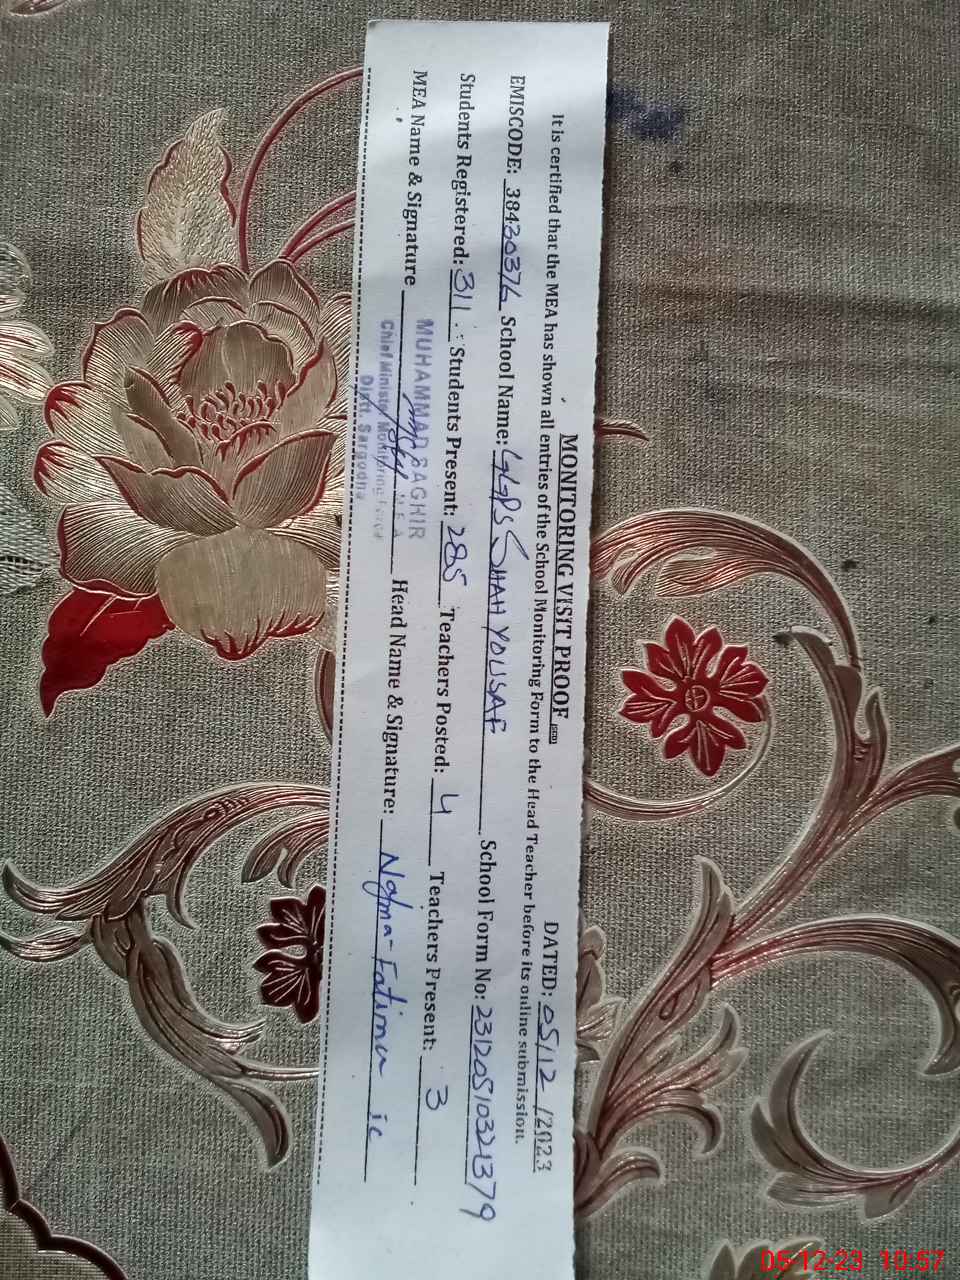 MONITORING VISIT PROOF
DATED: 05/12/2023
It is certified that the MEA has shown all entries of the School Monitoring Form to the Head Teacher before its online submission.
EMISCODE: 38430376 School Name: GGPS SHAH YOUSAF School Form No: 23120510321379
Students Registered: 311 Students Present: 285 Teachers Posted: 4 Teachers Present: 3
MEA Name & Signature Head Name & Signature: Najma-Fatima ic
MUHAMMAD SAGHIR
Chief Minister Monitoring Force
Distt. Sargodha
05-12-23 10:57